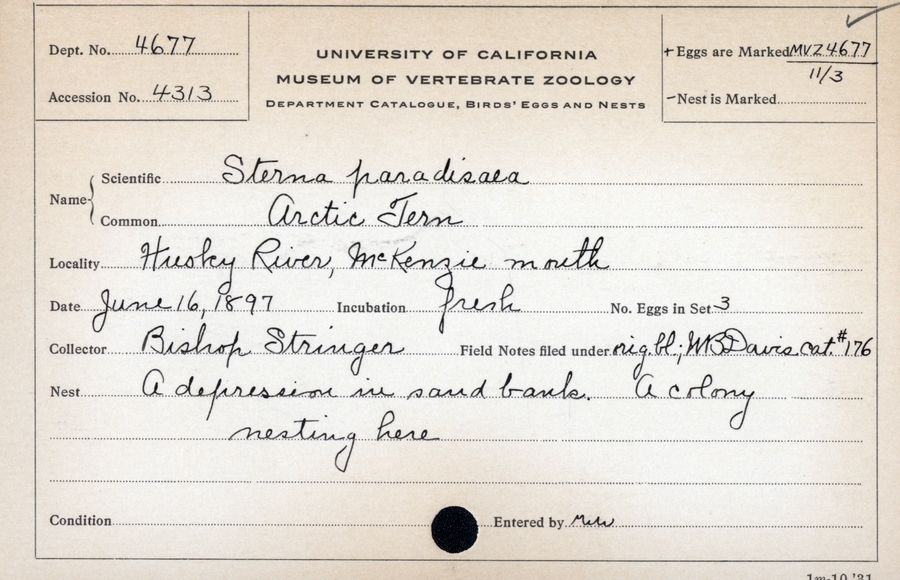 Dept. No. 4677
Accession No. 4313
UNIVERSITY OF CALIFORNIA
MUSEUM OF VERTEBRATE ZOOLOGY
DEPARTMENT CATALOGUE, BIRDS' EGGS AND NESTS
+ Eggs are Marked MVZ4677
11/3
- Nest is Marked
Name
Scientific Sterna paradisaea
Common Arctic Tern
Locality Husky River, McKenzie mouth
Date June 16, 1897 Incubation fresh No. Eggs in Set 3
Collector Bishop Stringer Field Notes filed under orig. bl.; WBDavis cat. #176
Nest A depression in sand bank. A colony
nesting here
Condition Entered by
1m-10-'31